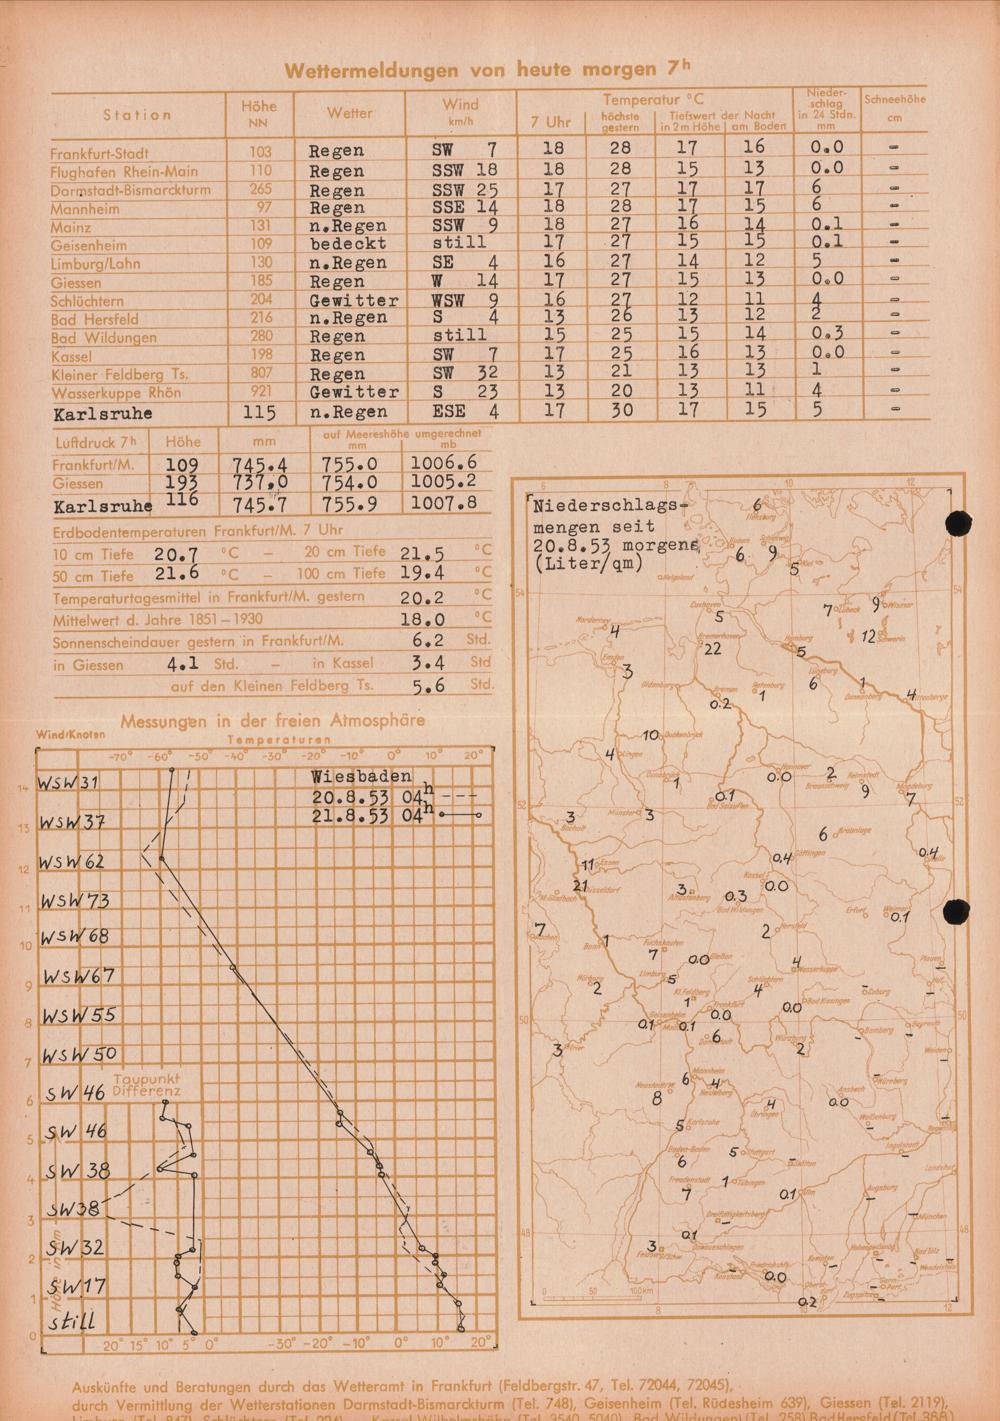 Wettermeldungen von heute morgen 7h
Station Höhe NN Wetter Wind km/h Temperatur °C 7 Uhr höchste gestern Tiefstwert der Nacht in 2m Höhe am Boden Niederschlag in 24 Stdn. mm Schneehöhe cm
Frankfurt-Stadt 103 Regen SW 7 18 28 17 16 0.0 -
Flughafen Rhein-Main 110 Regen SSW 18 18 28 15 13 0.0 -
Darmstadt-Bismarckturm 265 Regen SSW 25 17 27 17 17 6 -
Mannheim 97 Regen SSE 14 18 28 17 15 6 -
Mainz 131 n.Regen SSW 9 18 27 16 14 0.1 -
Geisenheim 109 bedeckt still 17 27 15 15 0.1 -
Limburg/Lahn 130 n.Regen SE 4 16 27 14 12 5 -
Giessen 185 Regen W 14 17 27 15 13 0.0 -
Schlüchtern 204 Gewitter WSW 9 16 27 12 11 4 -
Bad Hersfeld 216 n.Regen S 4 13 26 13 12 2 -
Bad Wildungen 280 Regen still 15 25 15 14 0.3 -
Kassel 198 Regen SW 7 17 25 16 13 0.0 -
Kleiner Feldberg Ts. 807 Regen SW 32 13 21 13 13 1 -
Wasserkuppe Rhön 921 Gewitter S 23 13 20 13 11 4 -
Karlsruhe 115 n.Regen ESE 4 17 30 17 15 5 -
Luftdruck 7h Höhe mm auf Meereshöhe umgerechnet mm mb
Frankfurt/M. 109 745.4 755.0 1006.6
Giessen 193 737,0 754.0 1005.2
Karlsruhe 116 745.7 755.9 1007.8
Erdbodentemperaturen Frankfurt/M. 7 Uhr
10 cm Tiefe 20.7 °C – 20 cm Tiefe 21.5 °C
50 cm Tiefe 21.6 °C – 100 cm Tiefe 19.4 °C
Temperaturtagesmittel in Frankfurt/M. gestern 20.2 °C
Mittelwert d. Jahre 1851–1930 18.0 °C
Sonnenscheindauer gestern in Frankfurt/M. 6.2 Std.
in Giessen 4.1 Std. – in Kassel 3.4 Std
auf den Kleinen Feldberg Ts. 5.6 Std.
Messungen in der freien Atmosphäre
Wind/Knoten Temperaturen
-70° -60° -50° -40° -30° -20° -10° 0° 10° 20°
Wiesbaden
20.8.53 04h ---
21.8.53 04h
14 WSW 31
13 WSW 37
12 WSW 62
11 WSW 73
10 WSW 68
9 WSW 67
8 WSW 55
7 WSW 50
6 SW 46
Taupunkt
Differenz
5 SW 46
4 SW 38
3 SW 38
2 SW 32
1 SW 17
0 still
Höhe in km
20° 15° 10° 5° 0° -30° -20° -10° 0° 10° 20°
Niederschlags-
mengen seit
20.8.53 morgens
(Liter/qm)
6 8 10 12
Flensburg 6
6 9
Kiel 5
Helgoland
54
Cuxhaven 5
7 Lübeck 9 Wismar
Norderney 4
Bremerhaven 22
Hamburg 5
12 Schwerin
Emden 3
Oldenburg
Bremen 0.2
Rotenburg 1
Lüneburg 6
Dannenberg 1
4
10 Quakenbrück
Lingen 4
Osnabrück 1
Hannover 0.0
Braunschweig 2
Helmstedt 9
Magdeburg 7
52
Bad Salzuflen 0.1
Münster 3
Bocholt 3
Braunlage 6
Essen 11
Göttingen 0.4
Halle 0.4
Düsseldorf 21
M.Gladbach
Kassel 0.0
3
Bad Wildungen 0.3
Erfurt
Weimar 0.1
Aachen 7
Bonn 1
Hersfeld 2
Fuchskauten 7
Gießen 0.0
Wasserkuppe 4
Plauen -
Nürburg 2
Limburg 5
Schlüchtern 4
Coburg -
Kl.Feldberg 1
Frankfurt 0.0
Bad Kissingen 0.0
50
Geisenheim 0.1
Mainz 0.1
6
Bamberg -
Bayreuth -
Würzburg 2
Trier 3
Weiden -
Mannheim 6
Heidelberg 4
8
Nürnberg -
Ansbach 0.0
Öhringen 4
Weißenburg -
Karlsruhe 5
Baden-Baden 6
Stuttgart 5
Ingolstadt -
Landshut
Freudenstadt 7
Tübingen 1
Ulm 0.1
Augsburg -
München -
48
0.1
Donaueschingen
3
Friedrichshafen 0.0
Konstanz -
Kempten -
Hohenpeißenberg -
Bad Tölz -
Zugspitze -
0.2
0 50 100 km
8 10 12
Auskünfte und Beratungen durch das Wetteramt in Frankfurt (Feldbergstr. 47, Tel. 72044, 72045),
durch Vermittlung der Wetterstationen Darmstadt-Bismarckturm (Tel. 748), Geisenheim (Tel. Rüdesheim 639), Giessen (Tel. 2119),